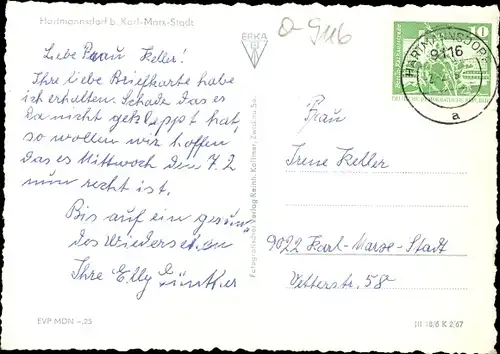 Hartmannsdorf b. Karl-Marx-Stadt
O-9116
ERKA
HARTMANNSDORF
9116
a
10
Liebe Frau Keller!
Ihre liebe Briefkarte habe
ich erhalten. Schade das es
Da nicht geklappt hat,
so wollen wir hoffen
das es Mittwoch den 7.2
nun recht ist.
Bis auf ein gesun-
des Wiedersehen
Ihre Elly Günther
Fotografischer Verlag Reinh. Kallmer, Zwickau Sa.
Frau
Irene Keller
9022 Karl-Marx-Stadt
Vetterstr. 58
EVP MDN -,25
III 18/6 K 2/67